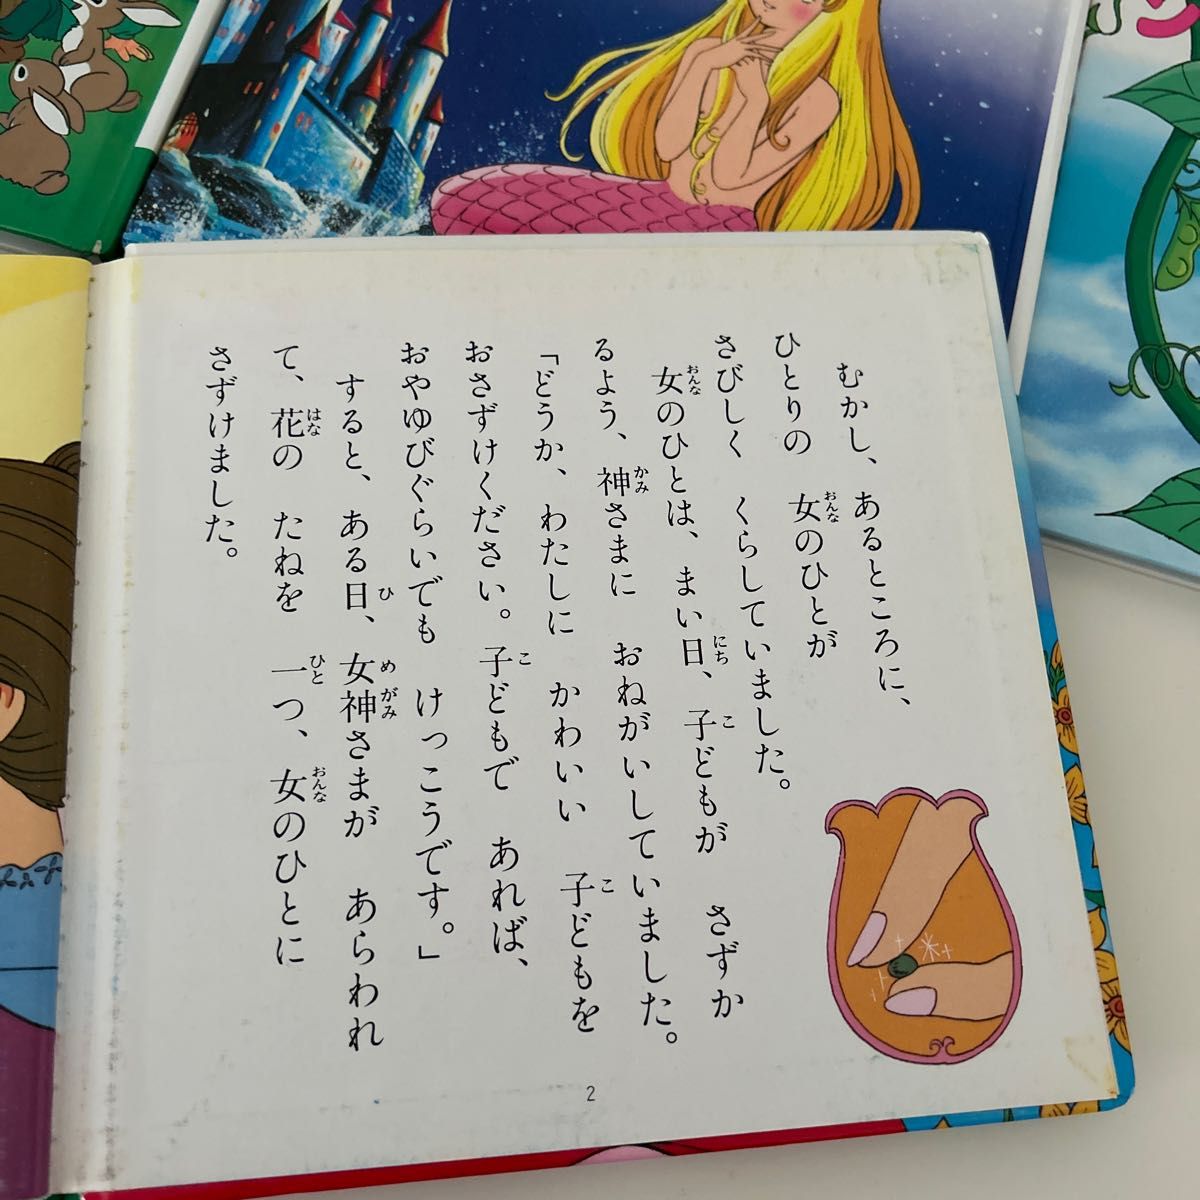 むかし、あるところに、
ひとりの 女のひとが
さびしく くらしていました。
女のひとは、まい日、子どもが さずか
るよう、神さまに おねがいしていました。
「どうか、わたしに かわいい 子どもを
おさずけください。子どもで あれば、
おやゆびぐらいでも けっこうです。」
すると、ある日、女神さまが あらわれ
て、花の たねを 一つ、女のひとに
さずけました。
2